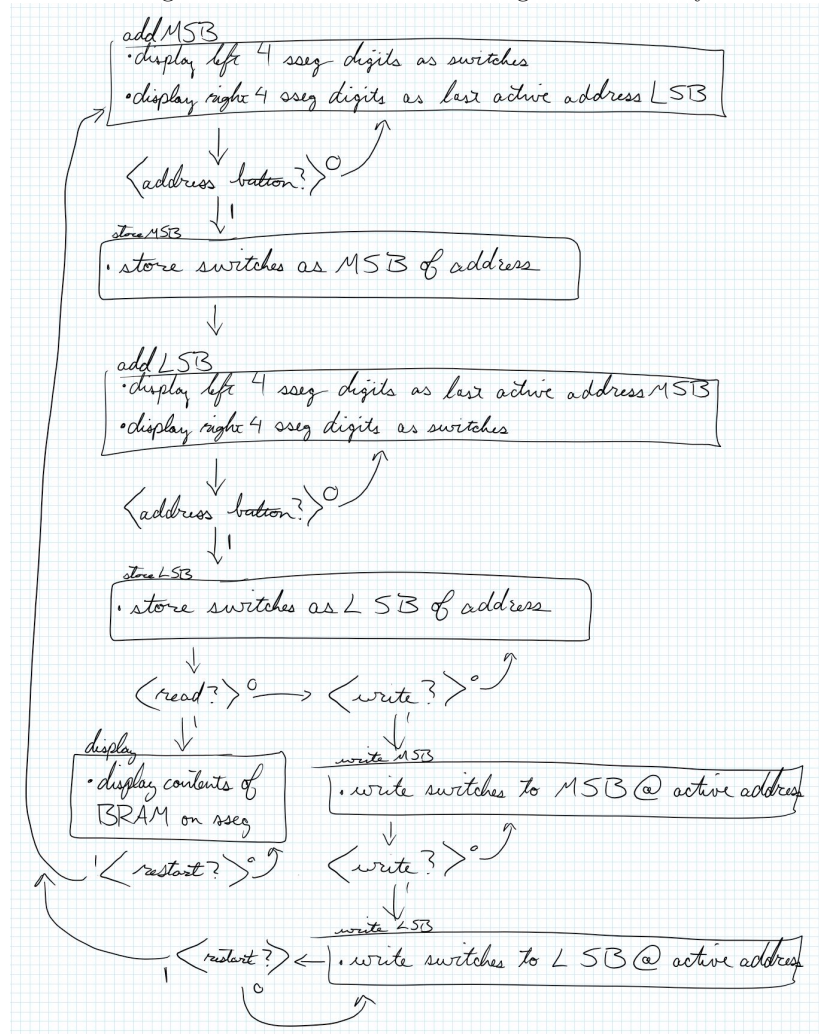 add MSB
• display left 4 sseg digits as switches
• display right 4 sseg digits as last active address LSB
<address button?> 0
1
store MSB
• store switches as MSB of address
add LSB
• display left 4 sseg digits as last active address MSB
• display right 4 sseg digits as switches
<address button?> 0
1
store LSB
• store switches as LSB of address
<read?> 0 <write?> 0
1 1
display
write MSB
• display contents of
BRAM on sseg
• write switches to MSB @ active address
1 <restart?> 0 <write?> 0
1
write LSB
<restart?> • write switches to LSB @ active address
1
0